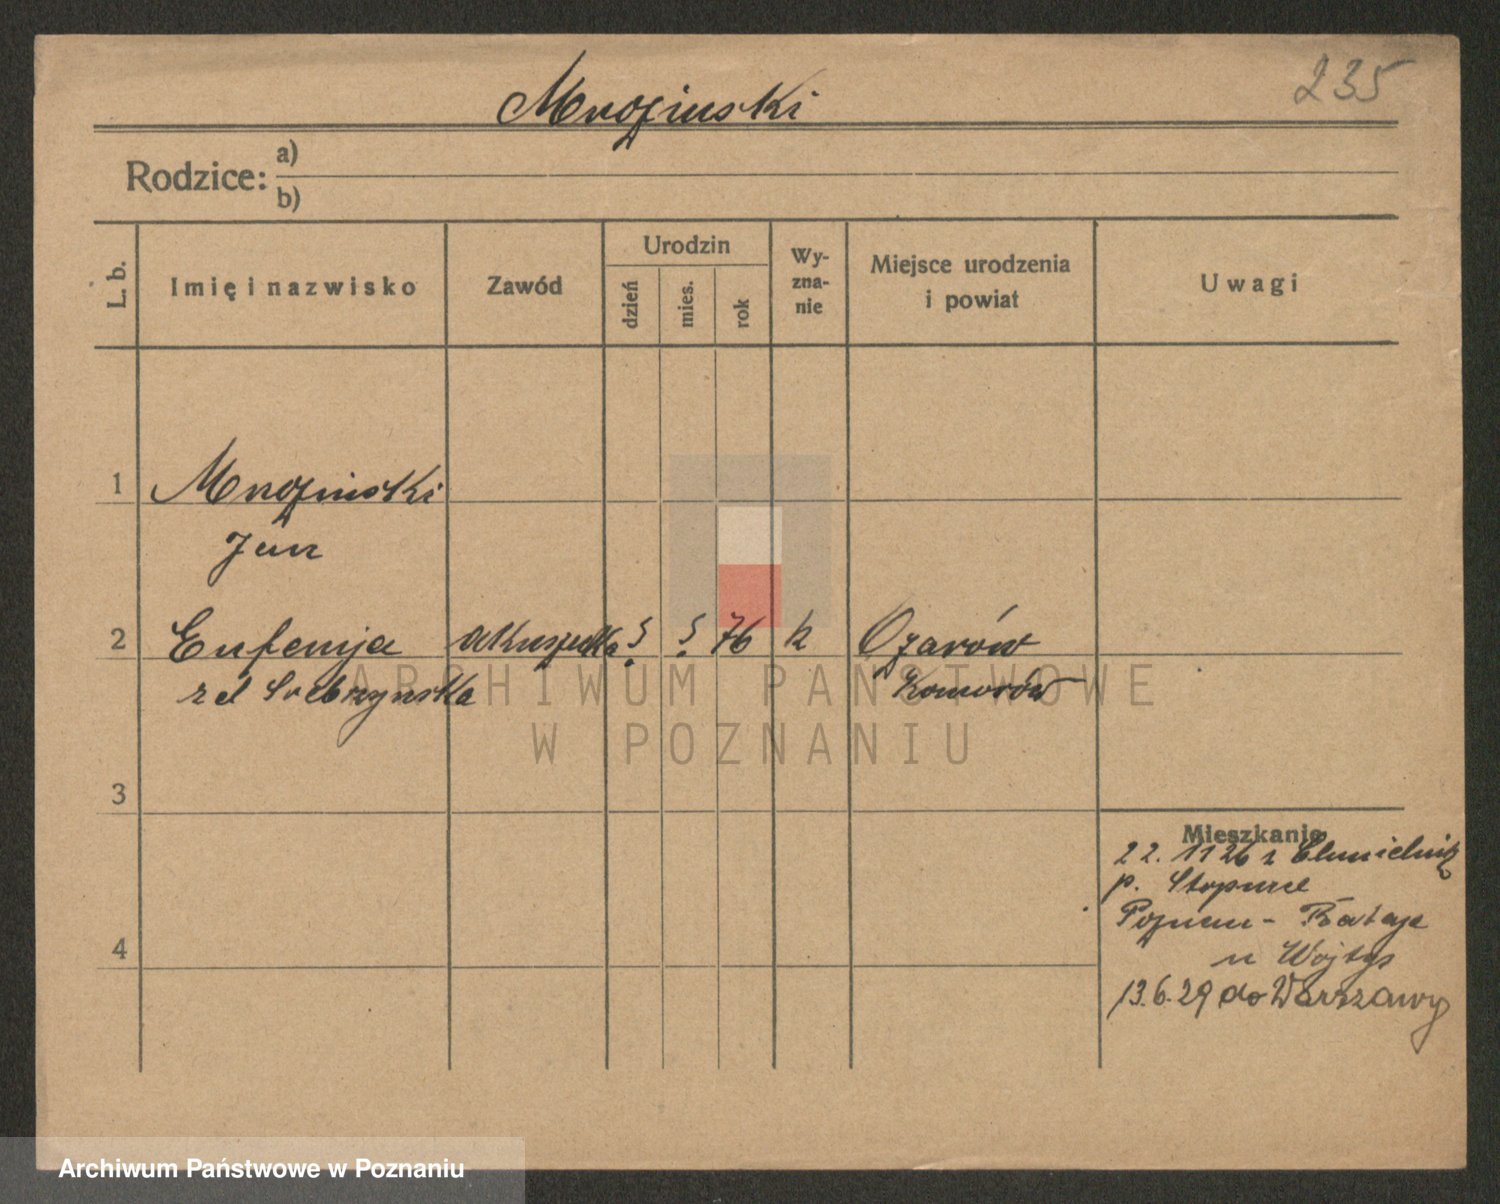 235
Mroziński
Rodzice: a)
b)
L. b. Imię i nazwisko Zawód Urodzin dzień mies. rok Wyznanie Miejsce urodzenia i powiat Uwagi
1 Mroziński
Jan
2 Eufemja akuszerka 5. 5. 76 k Ożarów
zd Srebrzyńska Komorów
ARCHIWUM PAŃSTWOWE
W POZNANIU
3
Mieszkanie
22. 11 26 z Chmielnik
p. Stopnica
Poznań - Rataje
u Wojtys
4
13.6.29 do Warszawy
Archiwum Państwowe w Poznaniu